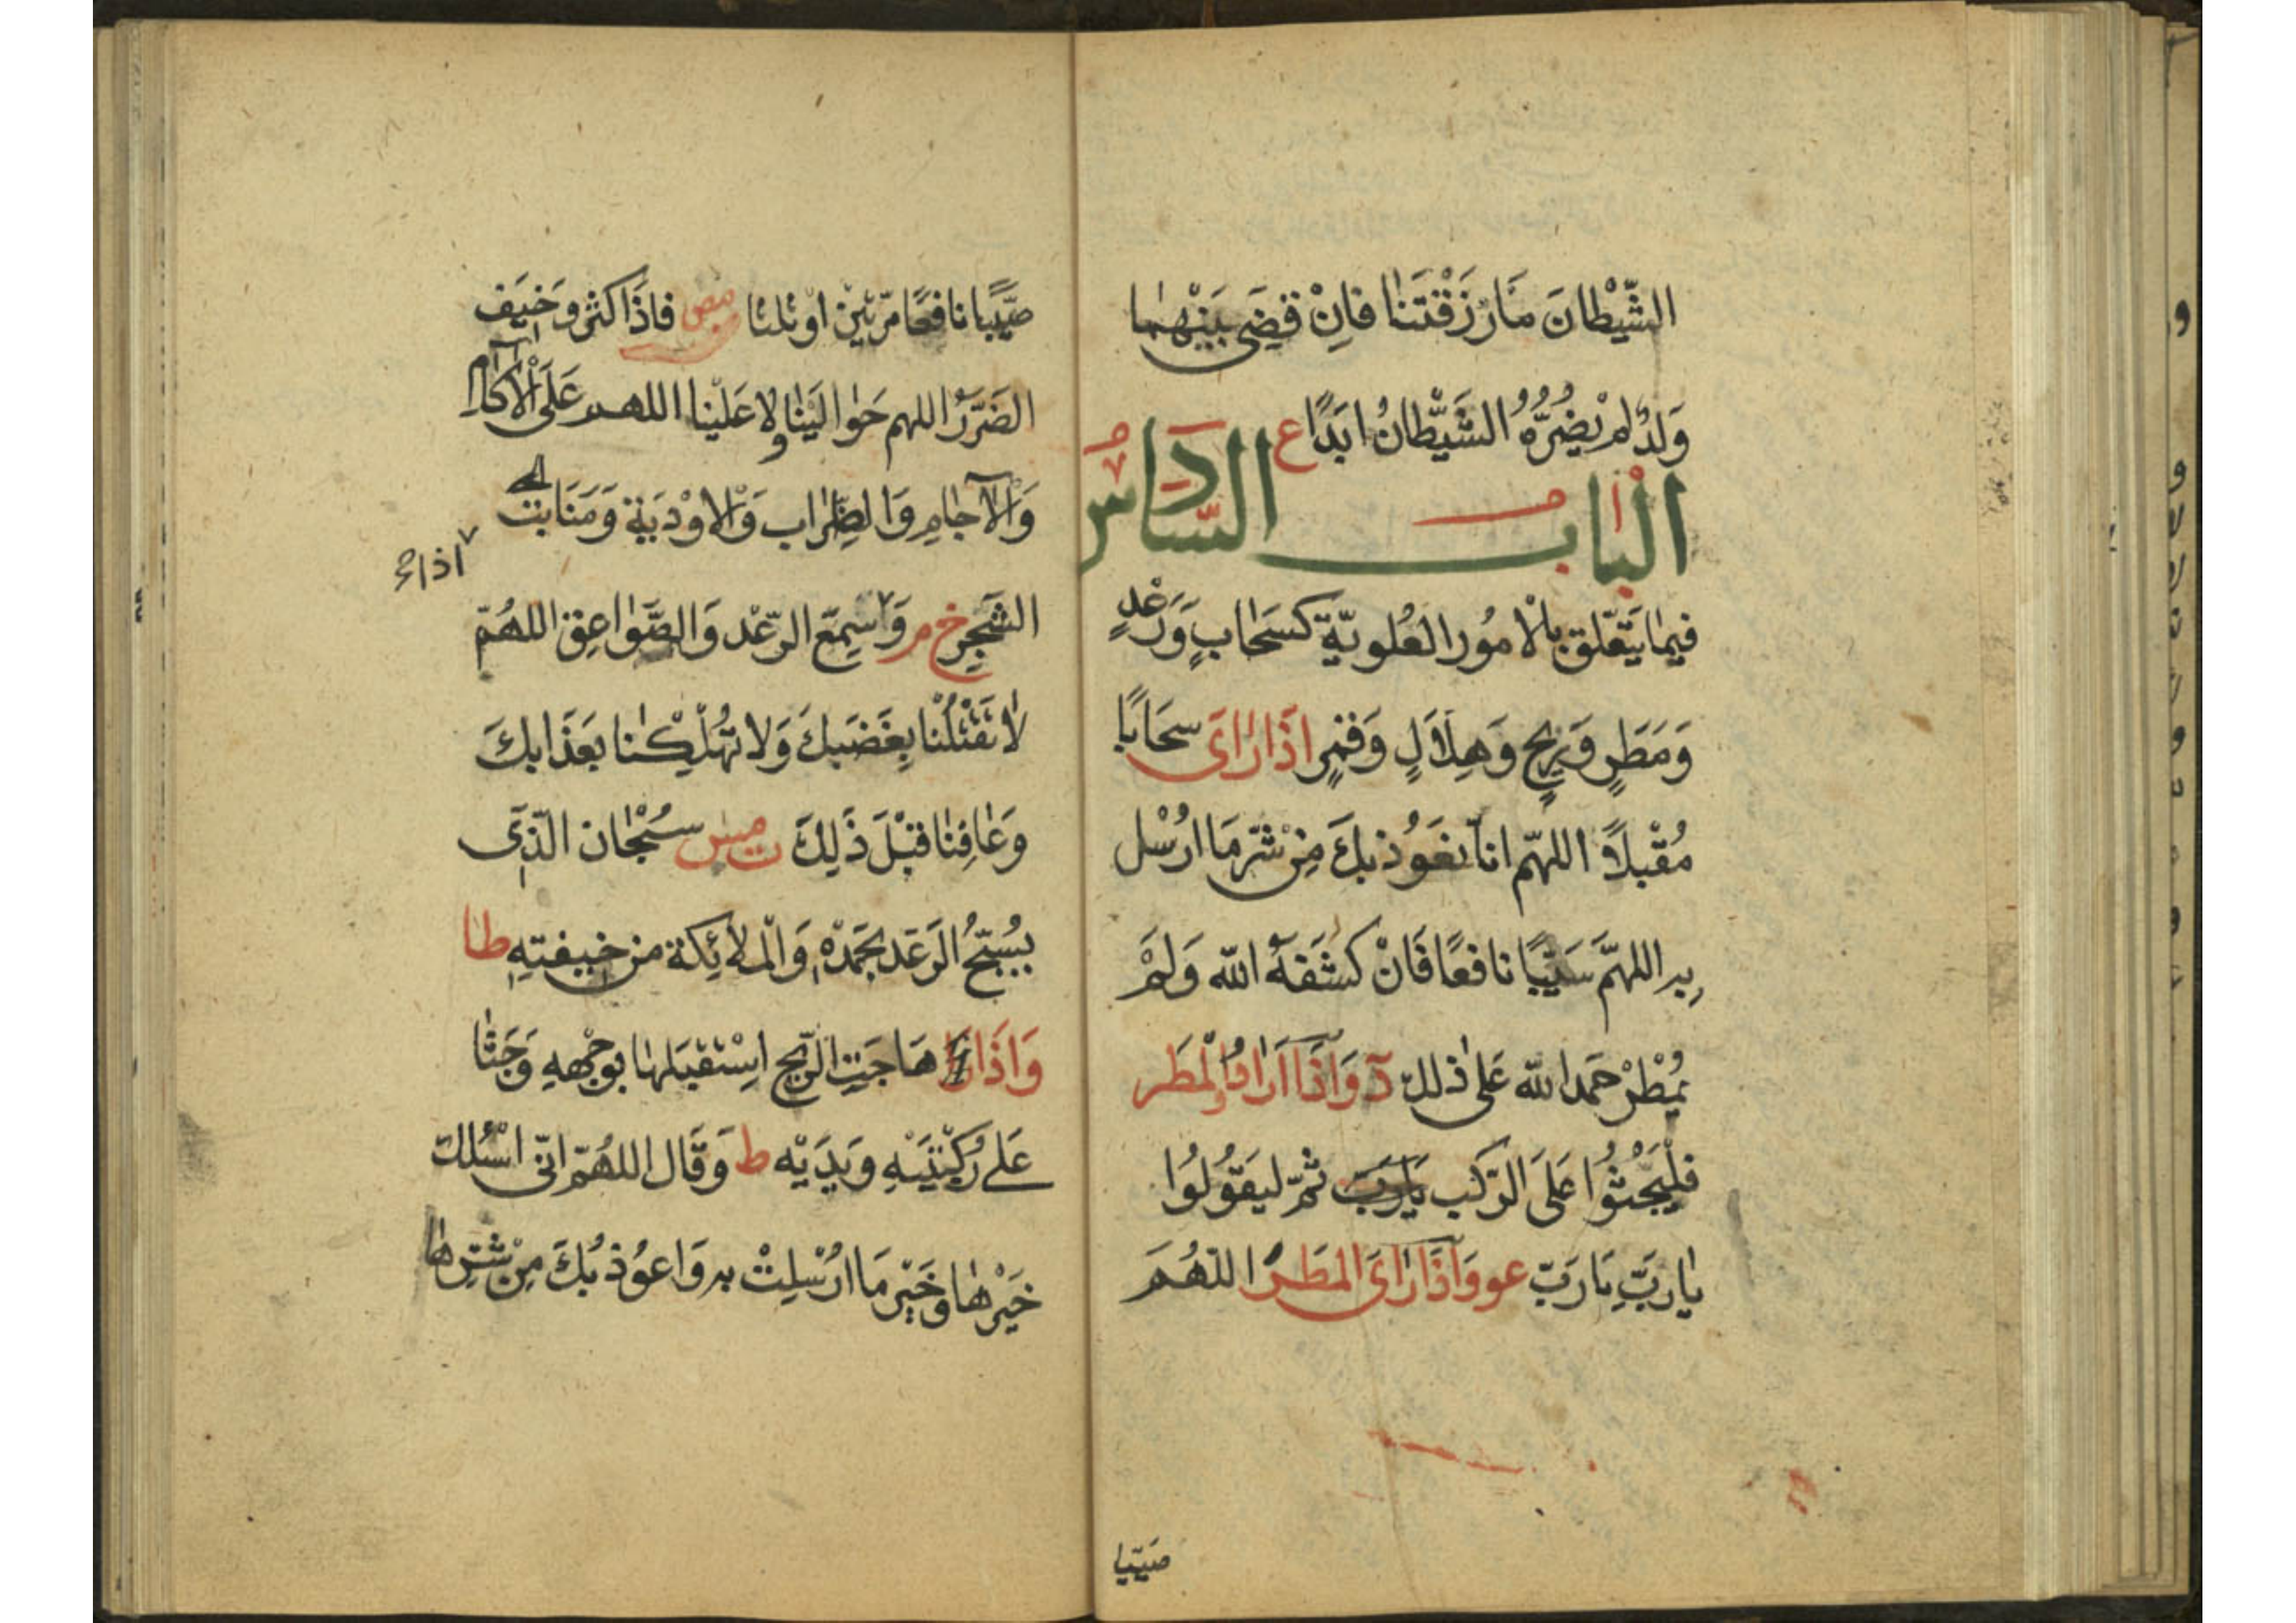 الشَّيْطَانَ مَا رَزَقْتَنَا فَاِنْ قَضَى بَيْنَهُمَا
وَلَدٌ لَمْ يَضُرُّهُ الشَّيْطَانُ اَبَدًا ع
الباب السادس
فيما يَتَعَلَّق بِالْامُور العُلويّة كَسَحَابٍ وَرَعْدٍ
وَمَطَرٍ وَرِيحٍ وَهِلَالٍ وَقَمَرٍ اذَا رَاَى سحَابًا
مُقْبلاً اللهمّ انا نعَوُذ بكَ مِنْ شَرّ مَا ارُسْل
به اللهمَّ سَيْبًا نافعًا فَانْ كشَفَهُ الله وَلَمْ
يمُطْرْ حَمد الله عَلى ذلك د وَاذَا اَرادُوا المَطَر
فلْيَجْثُوُا عَلَى الرّكب يَارَبّ ثمّ ليَقوُلوُا
يارَبّ يَارَبّ عو وَاذَا رَاَى المَطَر اللهُمَ
صَيّبا
صَيِّبًا نافعًا مَرّتَيْن اوْ ثلثا مص فاذَا كثر وَخِيَف
الضّرَرُ اللهم حَوالَيْنَا ولا عَلَيْنا اللهم عَلَى الْآكام
وَالْآجَامِ وَالظِّرَاب وَالاوْدَيةَ وَمَنَابت
اذا
الشَّجِرِ خ م وَاسِمعَ الرّعْد وَالصَّوَاعِق اللهُمّ
لا تَقْتُلْنا بِغَضَبكَ وَلا تُهْلِكْنا بعَذَابكَ
وَعَافِنَا قَبْلَ ذَلِكَ ت مس سُبْحَان الّذَى
يسُبّحُ الرَعَد بحَمْدهْ وَالْملائِكة من خيفتهِ طا
وَاذَا هَاجَتِ الرّيح اسْتقبَلهَا بوَجْههِ وَجَثَا
عَلى رُكْبَتَيْهِ وَيَدَيْه ط وَقَال اللهُمّ انّى اسْئلك
خَيْرهَا وخَيْر مَا ارُسْلِتْ به وَاعوُذ بُكَ مِنْ شَرّهَا